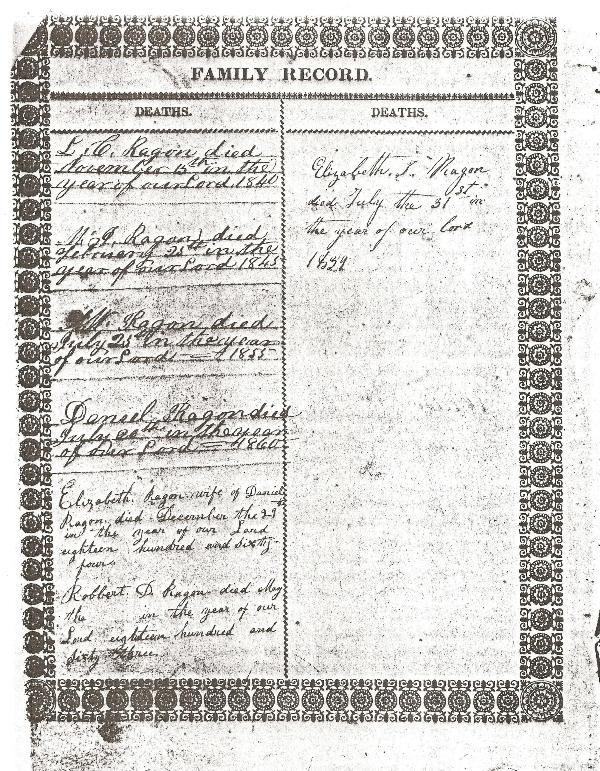 FAMILY RECORD.
DEATHS.
L. C. Ragon died
November 15th in the
year of our Lord 1840
Ragon died
February 25th in the
year of our Lord 1845
W. Ragon died
July 25th in the year
of our Lord = 1855
Daniel Ragon died
July 20th in the year
of our Lord = 1860
Elizabeth Ragon wife of Daniel
Ragon died December the
in the year of our Lord
eighteen hundred and sixty
four
Robbert D. Ragon died May
the in the year of our
Lord eighteen hundred and
sixty three
DEATHS.
Elizabeth Ragon
died July the 31st in
the year of our Lord